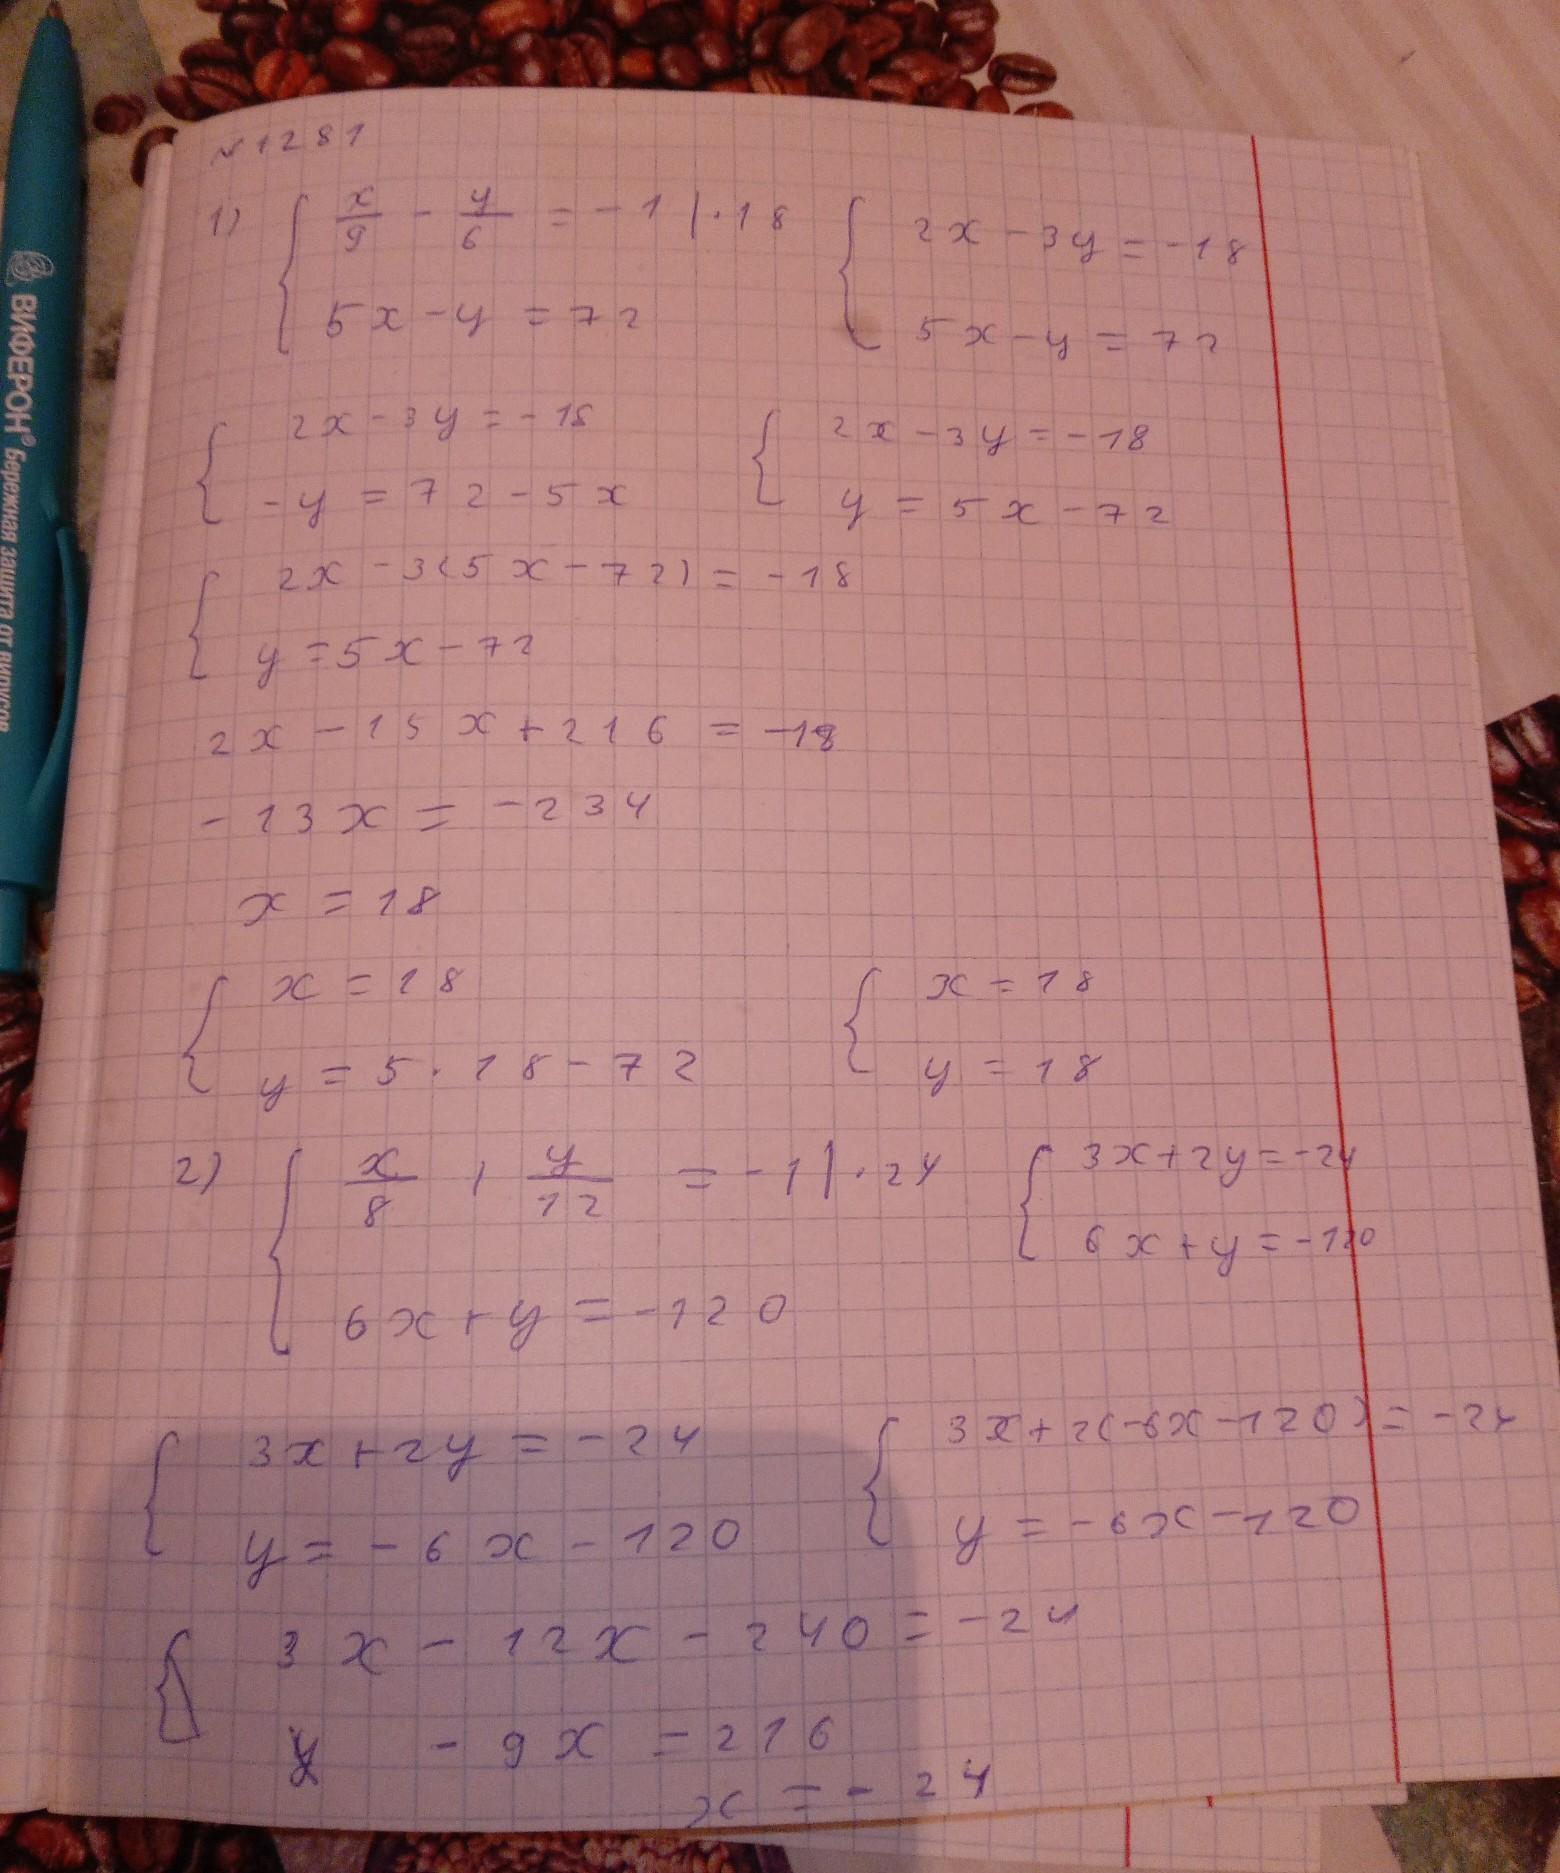 №1281
1) { x/9 - y/6 = -1 | · 18
5x - y = 72
{ 2x - 3y = -18
5x - y = 72
{ 2x - 3y = -18
-y = 72 - 5x
{ 2x - 3y = -18
y = 5x - 72
{ 2x - 3(5x - 72) = -18
y = 5x - 72
2x - 15x + 216 = -18
-13x = -234
x = 18
{ x = 18
y = 5 · 18 - 72
{ x = 18
y = 18
2) { x/8 + y/12 = -1 | · 24
6x + y = -120
{ 3x + 2y = -24
6x + y = -120
{ 3x + 2y = -24
y = -6x - 120
{ 3x + 2(-6x - 120) = -24
y = -6x - 120
{ 3x - 12x - 240 = -24
-9x = 216
x = -24
ВИФЕРОН® бережная защита от вирусов